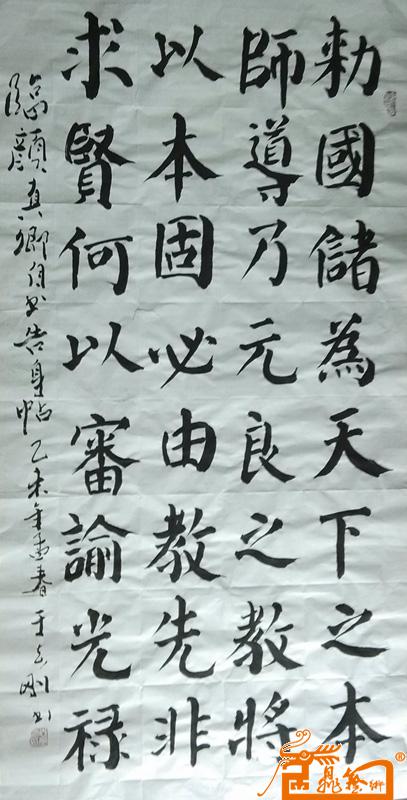 勅國儲為天下之本
師導乃元良之教將
以本固必由教先非
求賢何以審諭光禄
臨顏真卿自書告身帖乙未年孟春于志刚书